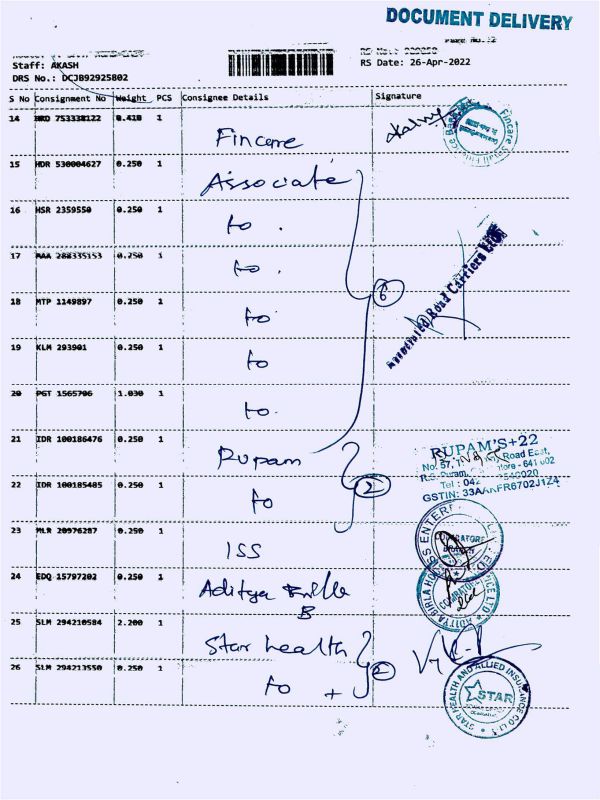 DOCUMENT DELIVERY
Staff: AKASH
RS Date: 26-Apr-2022
DRS No.: DCJB92925802
S No Consignment No Weight PCS Consignee Details Signature
14 753338122 0.410 1 Fincare
15 HDR 530004627 0.250 1 Associate
16 HSR 2359550 0.250 1 to
17 MAA 288335153 0.250 1 to
18 MTP 1149897 0.250 1 to
6
Associated Road Carriers Ltd
19 KLM 293901 0.250 1 to
20 PGT 1565706 1.030 1 to
21 IDR 100186476 0.250 1 Rupam
RUPAM'S+22
No. 57, Road East,
R.S. Puram, - 641 002
Tel : 042 2540020
GSTIN: 33A FR6702J1Z4
22 IDR 100185485 0.250 1 to
2
23 MLR 20976287 0.250 1 ISS
COIMBATORE
BRANCH
24 EDQ 15797202 0.250 1 Aditya Birla
B
25 SLM 294210584 2.200 1 Star health
2
26 SLM 294213550 0.250 1 to +
STAR HEALTH AND ALLIED INSURANCE CO LTD
STAR